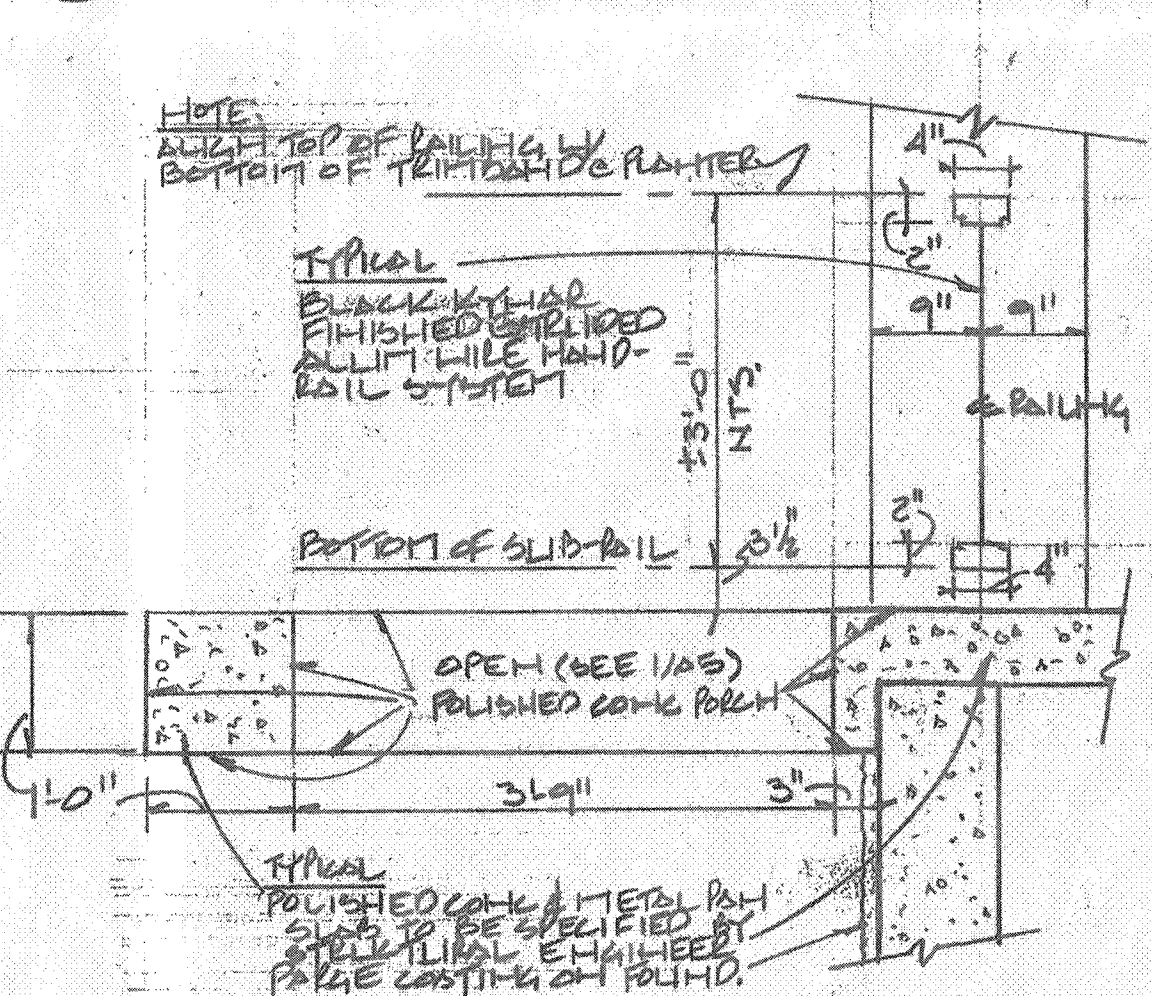 NOTE:
ALIGN TOP OF RAILING W/
BOTTOM OF TRIM BAND @ PLANTER
4"
2"
TYPICAL
BLACK KYNAR
FINISHED EXTRUDED
ALUM WIRE HAND-
RAIL SYSTEM
9" 9"
±3'-0"
N.T.S.
℄ RAILING
2"
BOTTOM OF SUB-RAIL
3½"
4"
OPEN (SEE 1/A5)
POLISHED CONC PORCH
1'-0"
3'-9"
3"
TYPICAL
POLISHED CONC & METAL PAN
SLAB TO BE SPECIFIED BY
STRUCTURAL ENGINEER
PARGE COATING ON FOUND.